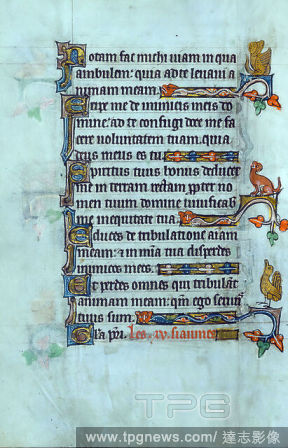 Notam fac michi uiam in qua
ambulem: quia ad te leuaui a
nimam meam.
Eripe me de inimicis meis do
mine: ad te confugi doce me fa
cere voluntatem tuam. quia
deus meus es tu
Spiritus tuus bonus deducet
me in terram rectam. propter no
men tuum domine uiuificab
me in equitate tua.
Educes de tribulatione aiam
meam: et in mia tua disperdes
inimicos meos.
Et perdes omnes qui tribulant
animam meam: qm ego seruus
tuus sum.
Gla pri.
TPG
www.tpgnews.com / 達志影像